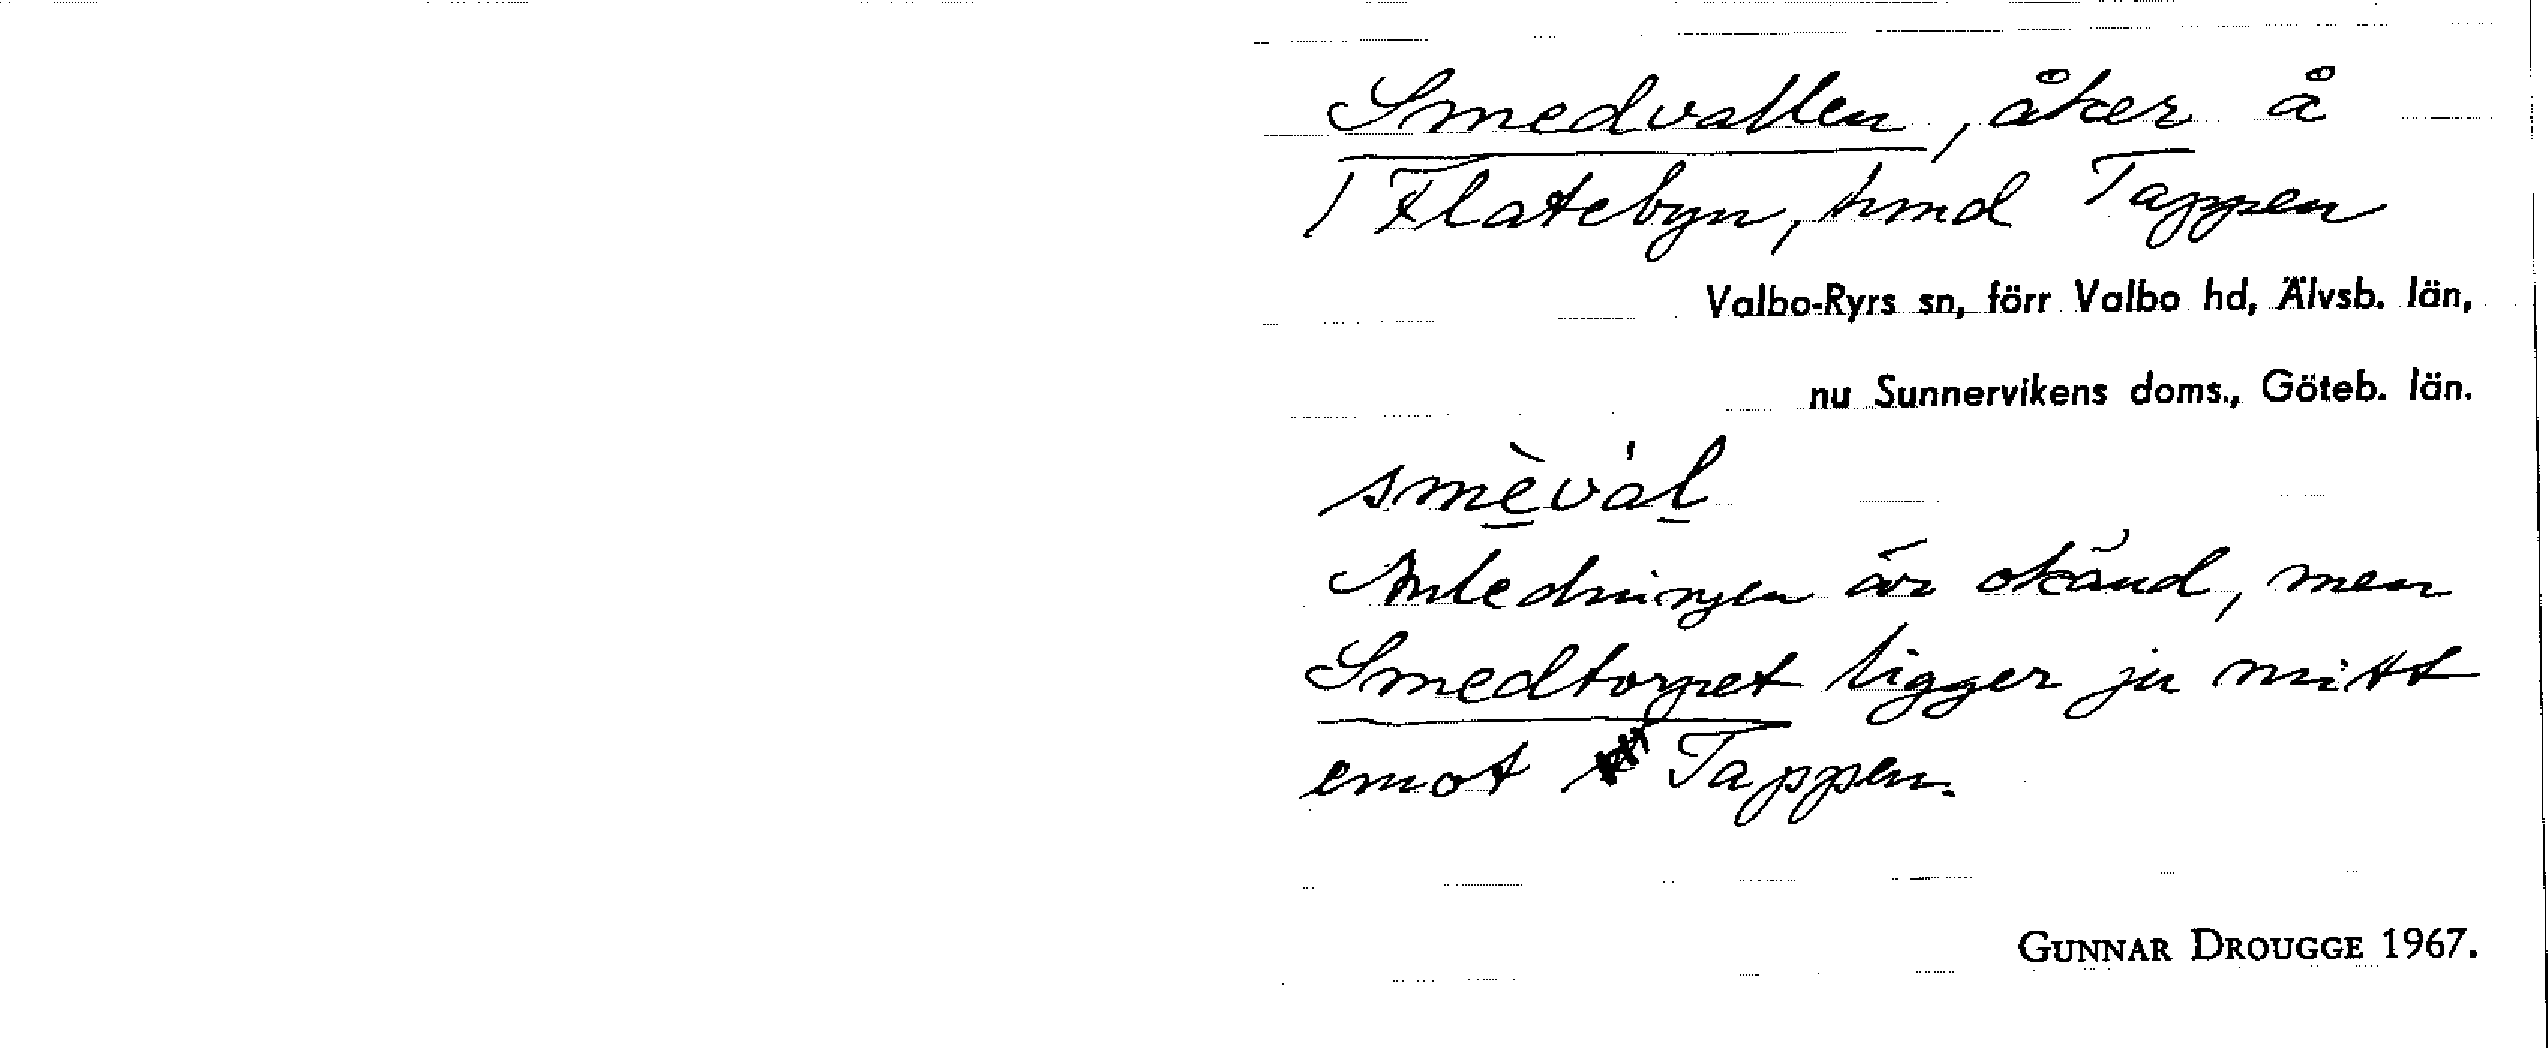 Smedvallen, åker å
1 Flatebyn, hmd Tappen
Valbo-Ryrs sn, förr Valbo hd, Älvsb. län,
nu Sunnervikens doms., Göteb. län.
smèvàl
Anledningen är okänd, men
Smedtorpet ligger ju mitt
emot Tappen.
GUNNAR DROUGGE 1967.